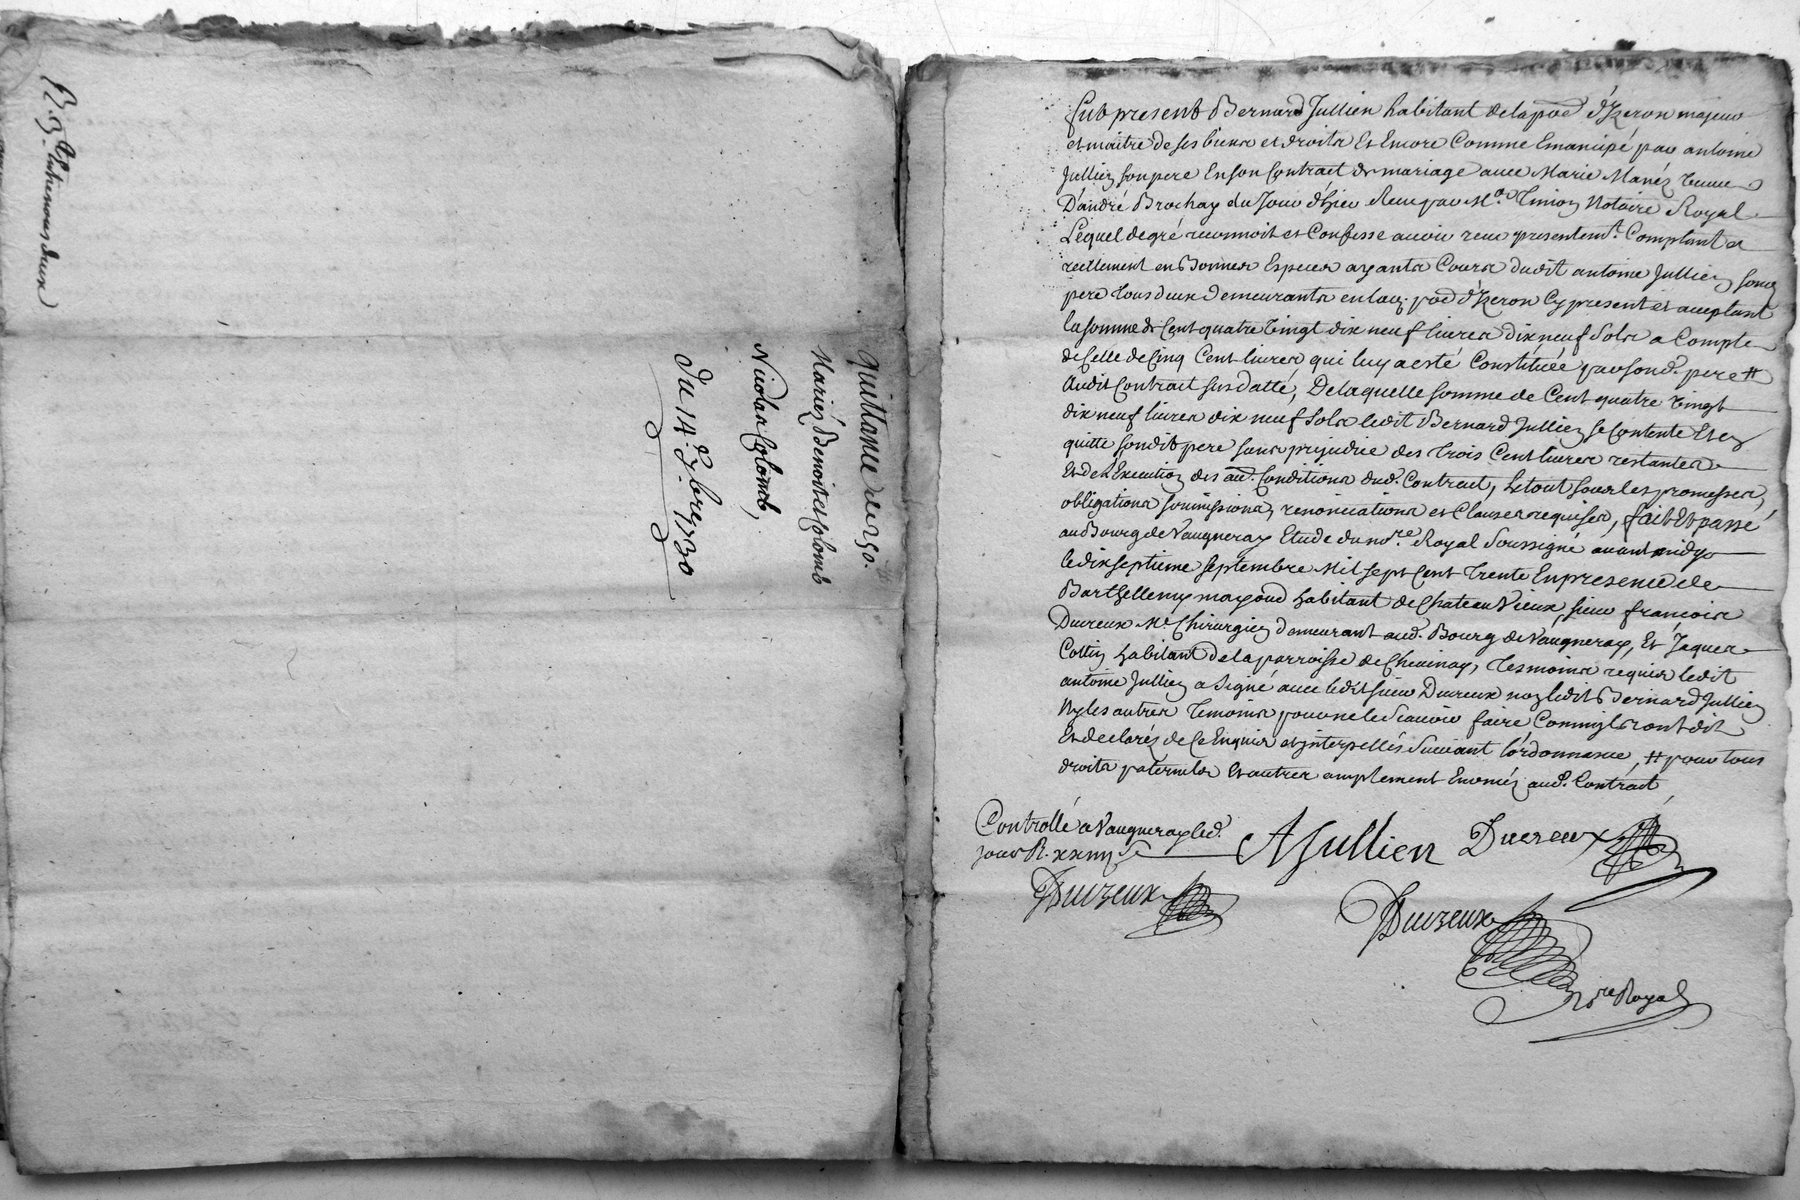 R. 3ᵉ
Quittance de 30.
Mariez Benoit et Colomb
Nicolas Colomb,
Du 14ᵉ 7bre 1730
fut present Bernard Jullien habitant de la poë d'Izeron majeur
et maitre de ses biens et droits Et Encore Comme Emancipé par antoine
Jullien son pere En son Contract de mariage avec Marie
D'andré Brochay du Jour d'hier Receu par Mᵉ. Notaire Royal
Lequel de gré reconnoit et Confesse avoir receu presentemᵗ. Comptant et
reellement en Bonnes Especes ayants Cours dudit antoine Jullien son
pere tous deux demeurants en lad. poë d'Izeron Cy present et acceptant
la somme de Cent quatre Vingt dix neuf livres dix neuf Sols a Compte
de Celle de Cinq Cent livres qui luy a esté Constituée par sond. pere #
Audit Contrait sus datté, De laquelle somme de Cent quatre Vingt
dix neuf livres dix neuf sols ledit Bernard Jullien se Contente Et en
quitte sondit pere sans prejudice des trois Cent livres restantes
Et de l'Execution des au. Conditions dud. Contract, Le tout sous les promesses,
obligations soumissions, renonciations et Clauses requises, fait Et passé
au Bourg de Vaugneray Etude du noʳᵉ. Royal Soussigné avant midy
le dix septieme septembre Mil sept Cent Trente En presence de
Barthellemy mayoud habitant de Chateau Vieux, sieur francois
Ducreux Mᵉ. Chirurgien demeurant aud. Bourg de Vaugneray, Et Jaques
Cottin habitant de la parroisse de Chevinay, Tesmoins requis ledit
antoine Jullien a signé avec ledit sieur Ducreux non ledit Bernard Jullien
Ny les autres Temoins pour ne le Scavoir faire Comm'ils ont dit
Et declaré de Ce Enquis et interpellés Suivant l'ordonnance, # pour tous
droits paternels Et autres amplement Enoncés aud. Contract
Controllé a Vaugneray led.
jour R.
AJullien Ducreux
Ducreux
Ducreux
Nʳᵉ Royal